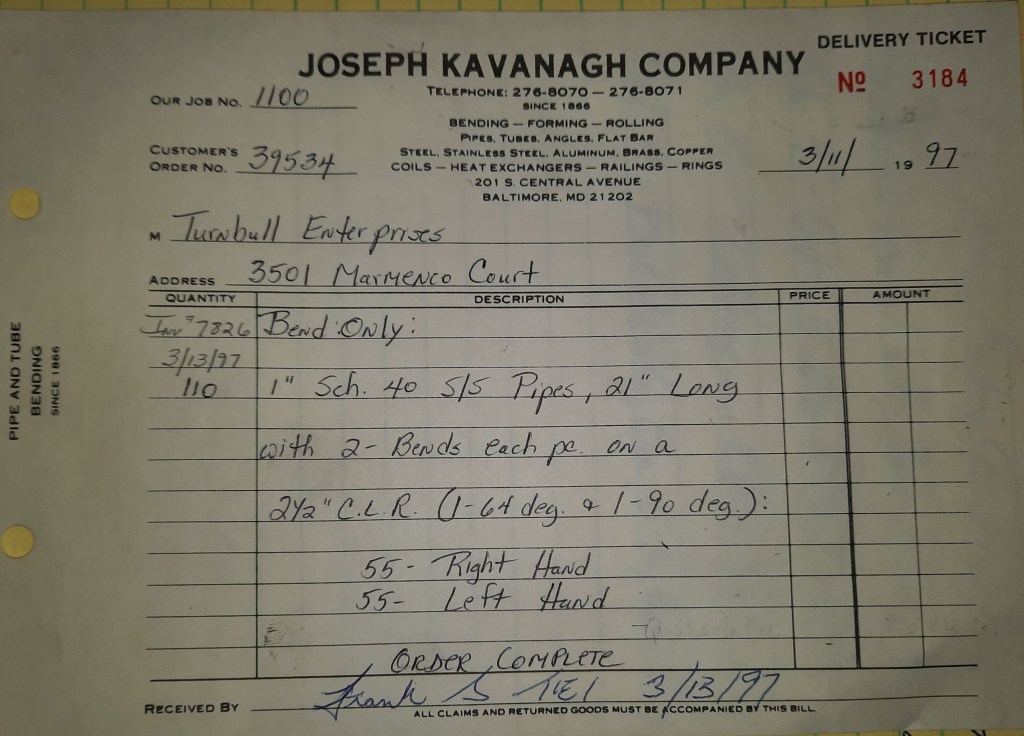 DELIVERY TICKET
JOSEPH KAVANAGH COMPANY
Nº 3184
OUR JOB NO. 1100
TELEPHONE: 276-8070 — 276-8071
SINCE 1866
BENDING — FORMING — ROLLING
PIPES, TUBES, ANGLES, FLAT BAR
CUSTOMER'S ORDER NO. 39534
STEEL, STAINLESS STEEL, ALUMINUM, BRASS, COPPER
COILS — HEAT EXCHANGERS — RAILINGS — RINGS
3/11/ 19 97
201 S. CENTRAL AVENUE
BALTIMORE, MD 21202
M Turnbull Enterprises
ADDRESS 3501 Marmenco Court
QUANTITY DESCRIPTION PRICE AMOUNT
Inv # 7826 Bend Only:
3/13/97
110 1" Sch. 40 S/S Pipes, 21" Long
with 2- Bends each pc. on a
2½" C.L.R. (1-64 deg. & 1-90 deg.):
55- Right Hand
55- Left Hand
ORDER COMPLETE
RECEIVED BY Frank S 3/13/97
ALL CLAIMS AND RETURNED GOODS MUST BE ACCOMPANIED BY THIS BILL
PIPE AND TUBE
BENDING
SINCE 1866